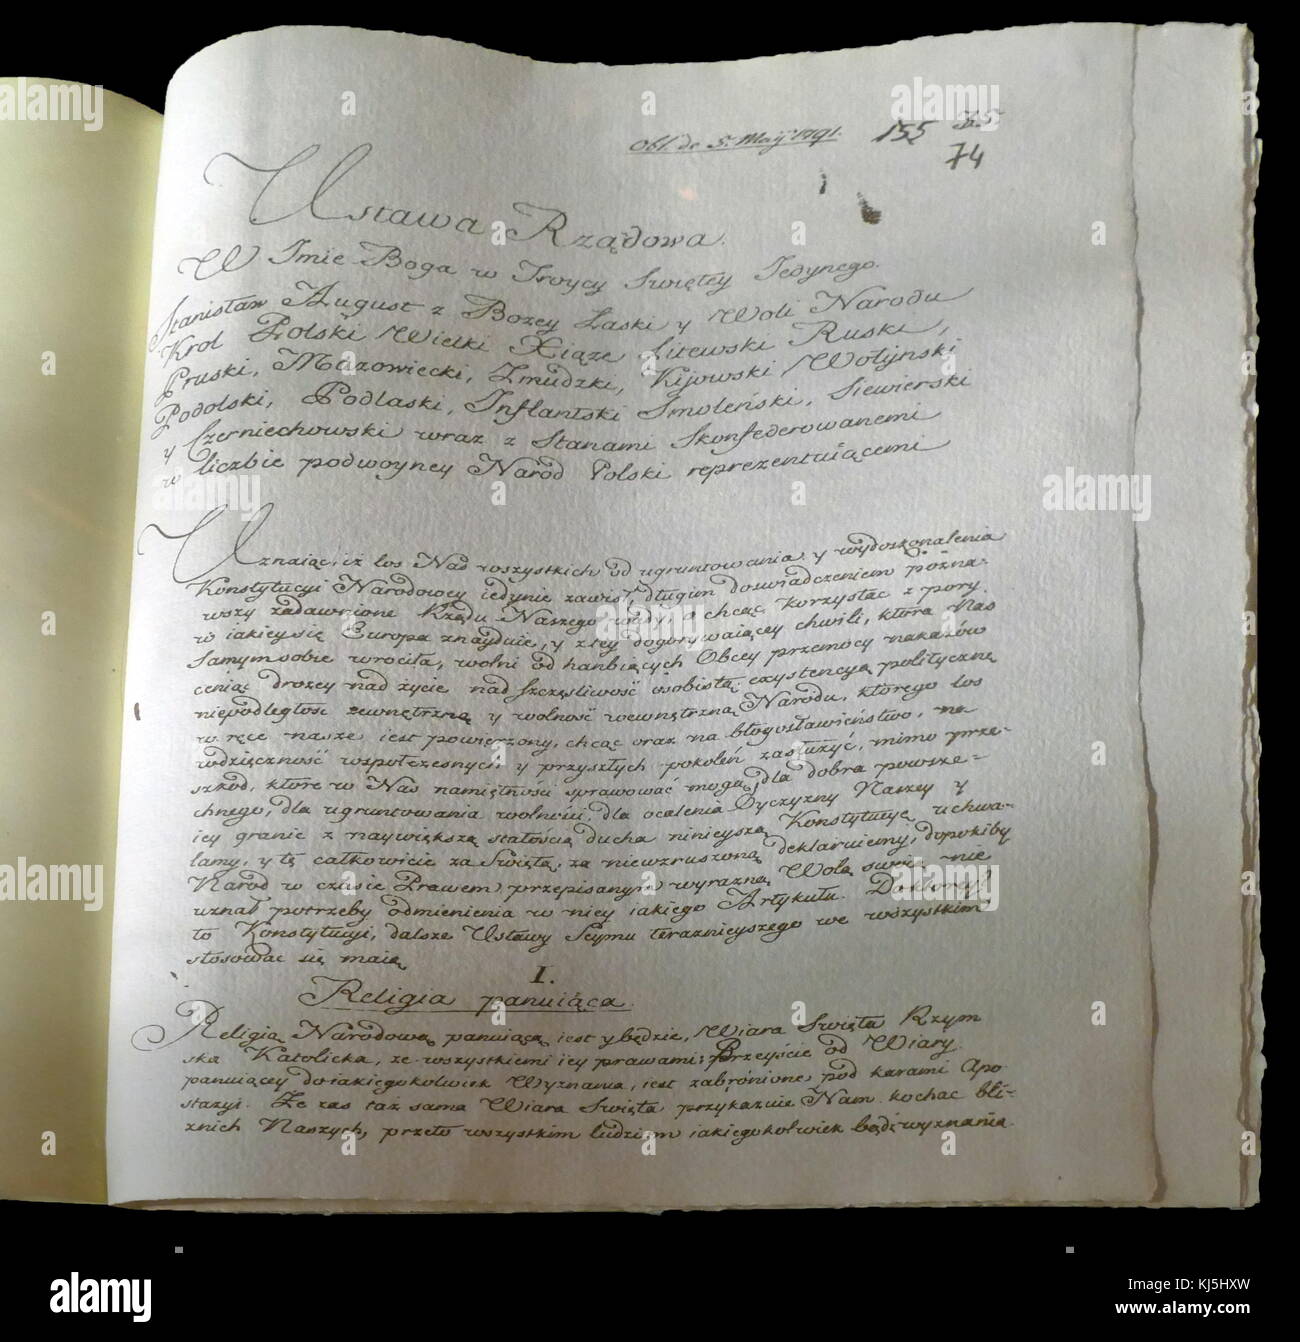 Obl. de 5. Maij 1791. 155 35
74
Ustawa Rządowa.
W Imie Boga w Troycy Swiętey Jedynego.
Stanisław August z Bozey Łaski y Woli Narodu
Krol Polski Wielki Xiąze Litewski Ruski,
Pruski, Mazowiecki, Zmudzki, Kijowski Wołynski
Podolski, Podlaski, Inflantski Smoleński, Siewierski
y Czerniechowski wraz z Stanami Skonfederowanemi
w liczbie podwoyney Naród Polski reprezentuiącemi
Uznaiąc, iż los Nas wszystkich od ugruntowania y wydoskonalenia
Konstytucyi Narodowey iedynie zawisł, długim doswiadczeniem pozna-
wszy zadawnione Rządu Naszego wady, a chcąc korzystać z pory
w iakiey się Europa znayduie, y z tey dogorywaiącey chwili, która Nas
samym sobie wrociła, wolni od hanbiących Obcey przemocy nakazów
ceniąc drozey nad życie nad Szczęśliwość osobistą, exystencyą polityczną
niepodległość zewnętrzną y wolność wewnętrzną Narodu, którego los
w ręce nasze iest powierzony, chcąc oraz na błogosławieństwo, na
wdzięczność wspołczesnych y przyszłych pokoleń zasłużyć, mimo prze-
szkod, które w Nas namiętności sprawować mogą, dla dobra powsze-
chnego, dla ugruntowania wolności, dla ocalenia Oyczyzny Naszey y
iey granic z naywiększą stałością ducha ninieyszą Konstytucyę uchwa-
lamy, y tę całkowicie za Swiętą, za niewzruszoną deklaruiemy, dopokiby
Narod w czasie Prawem przepisanym wyrazną Wolą swoią nie
uznał potrzeby odmienienia w niey iakiego Artykułu. Do ktorey
to Konstytucyi, dalsze Ustawy Seymu teraznieyszego we wszystkim
stosować się maią
I.
Religia panuiąca.
Religią Narodową panuiącą iest y będzie, Wiara Swięta Rzym
ska Katolicka, ze wszystkiemi iey prawami; Przeyście od Wiary
panuiącey do iakiegokolwiek Wyznania, iest zabronione pod karami Apo
stazyi. Ze zas taż sama Wiara Swięta przykazuie Nam kochac bli-
znich Naszych, przeto wszystkim ludziom iakiegokolwiek bądź wyznania
alamy
alamy
alamy
alamy
a
a
a
alamy
Image ID: KJ5HXW
www.alamy.com